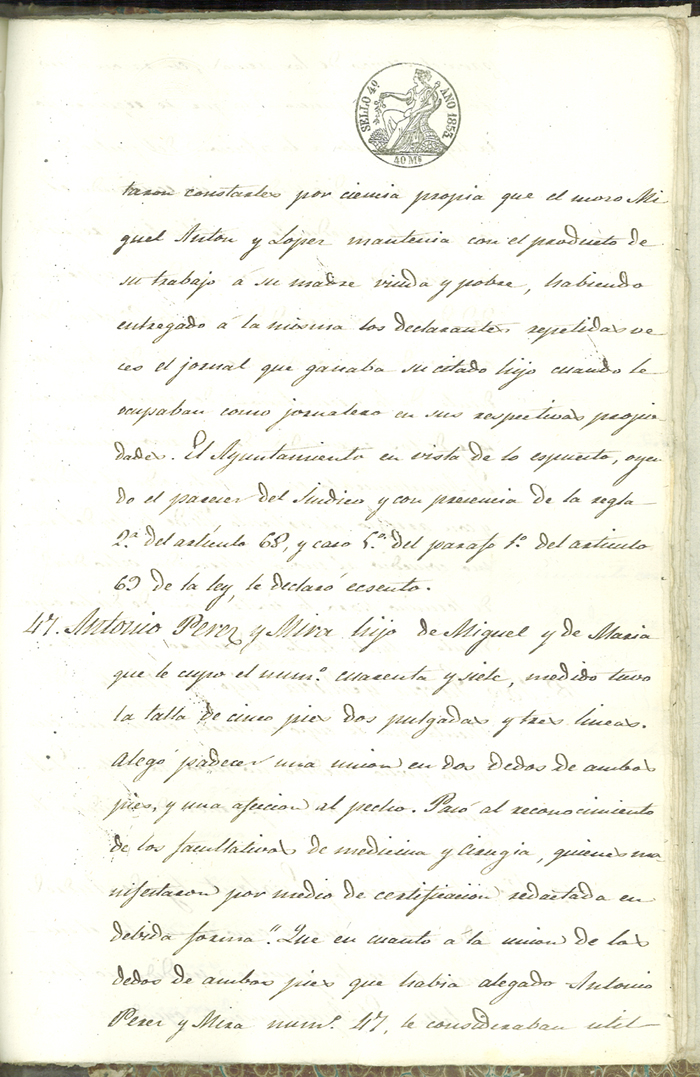 SELLO 4º AÑO 1853.
40 Ms
taron constarles por ciencia propia que el moro Mi
guel Anton y Loper mantenia con el producto de
su trabajo á su madre viuda y pobre, habiendo
entregado á la misma los declarantes repetidas ve
ces el jornal que ganaba su citado hijo cuando le
ocupaban como jornalero en sus respectivas propie
dades. El Ayuntamiento en vista de lo espuesto, oyen
do el parecer del Sindico y con presencia de la regla
2.ª del artículo 68, y caso 5.º del parafo 1.º del articulo
69 de la ley, le declaró ecsento.
47. Antonio Perez y Mira hijo de Miguel y de Maria
que le cupo el num.º cuarenta y siete, medido tuvo
la talla de cinco pies dos pulgadas y tres lineas.
Alegó padecer una union en dos dedos de ambos
pies, y una afeccion al pecho. Pasó al reconocimiento
de los facultativos de medicina y Cirugia, quienes ma
nifestaron por medio de certificacion redactada en
debida forma "Que en cuanto á la union de los
dedos de ambos pies que habia alegado Antonio
Perez y Mira num.º 47, le consideraban util